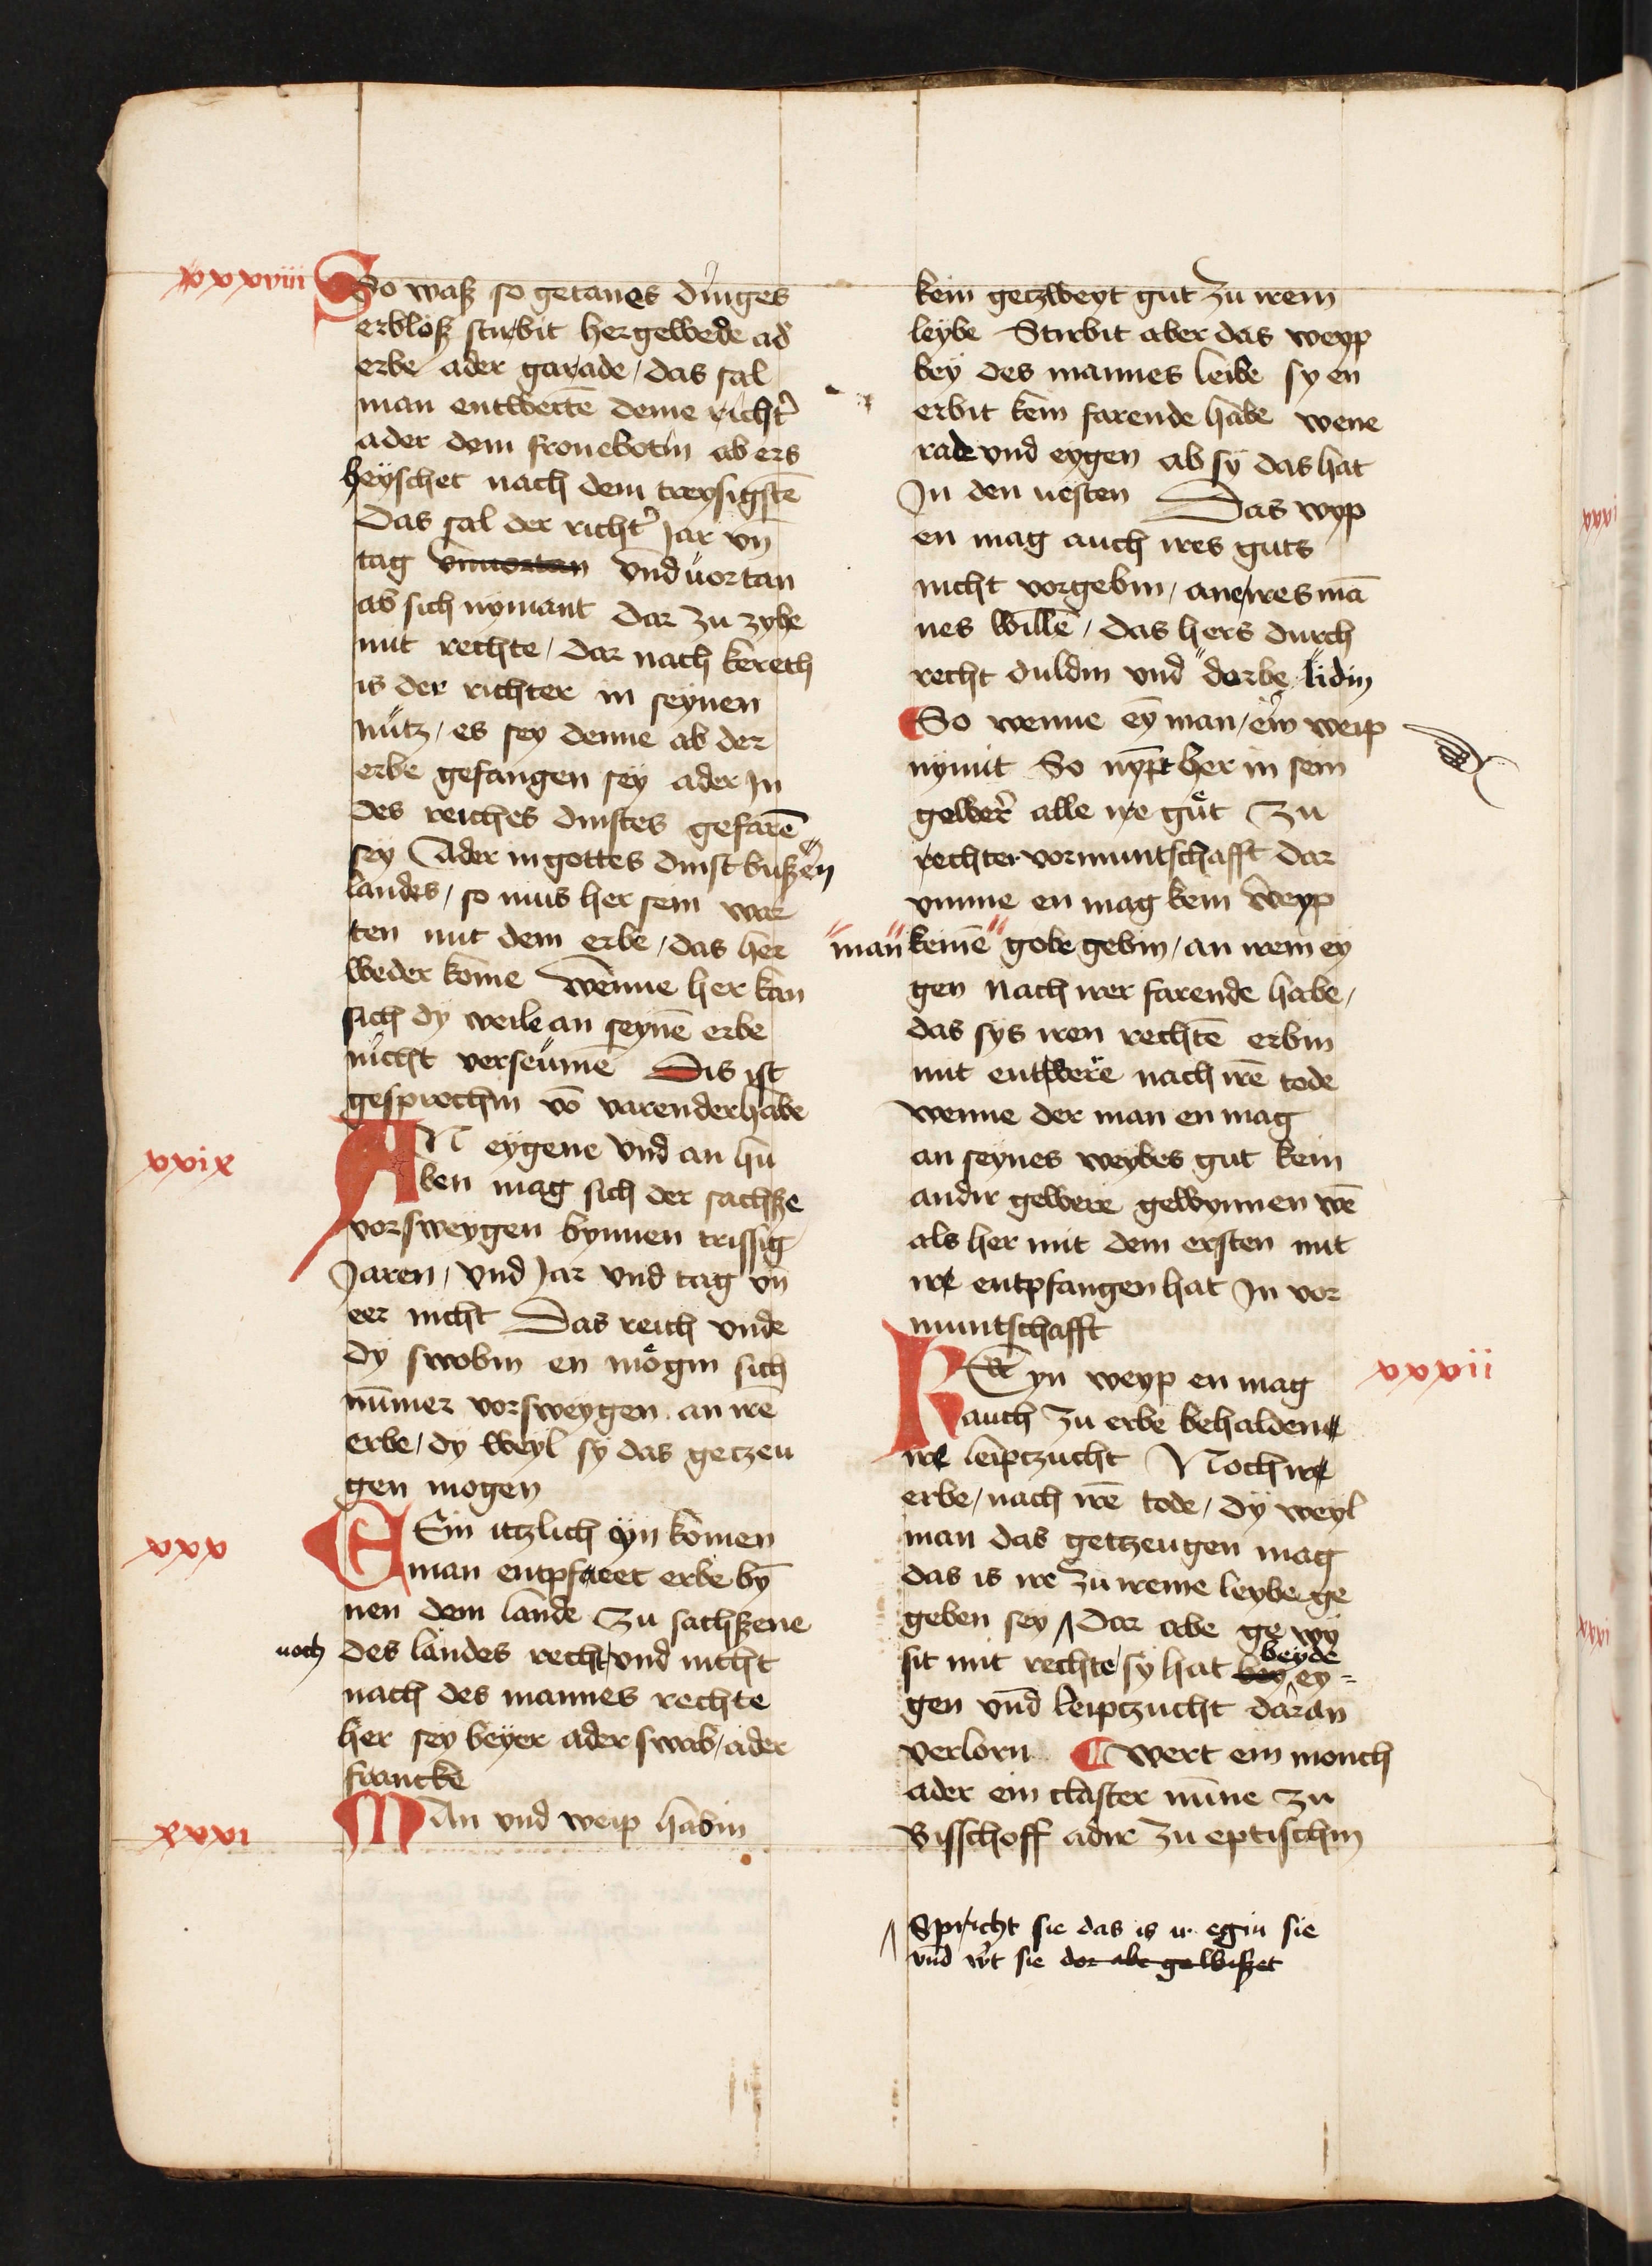 xxxviii
So waß so getanes dinges
erbloß stirbit hergewede ad'
erbe ader garade / das sal
man entwertē deme richt'
ader dem fronebotin ab ers
heyschet nach dem treysigstē
Das sal der richt' Jar vn̄
tag vnuortan vnd uortan
ab sich nymant dar zu zyhe
mit rechte / dar nach kereth
is der richter in seynen
nutz / es sey denne ab der
erbe gefangen sey ader In
des reiches dinstes gefarē
sey Ader in gottes dinst bußen
landes / so mus her sein war
ten mit dem erbe / das her
weder kome wenne her kan
sich dy weile an seynē erbe
nicht verseumē Dis ist
gesprochin vō varender habe
xxix
AN eygene vnd an hu
ben mag sich der sachße
vorsweygen bynnen trissig
Jaren / vnd Jar vnd tag vn̄
eer nicht Das reich vnde
dy swobin en mögin sich
nūmer vorsweygen an irē
erbe / dy weyl sy das getzeu
gen mogen
xxx
Ein itzlich yn komen
man entpfaeet erbe bȳ
nen dem lande zu sachßene
noch des landes recht vnd nicht
nach des mannes rechte
her sey beyer ader swab / ader
francke
xxxi
MAn vnd weip habin
kein getzweyt gut zu irem
leybe Stirbit aber das weyp
bey des mannes leibe sy en
erbit kein farende habe wene
rade vnd eygen ab sy das hat
In den nesten Das wyp
en mag auch ires guts
nicht vorgebin / ane ires mā
nes willē / das hers durch
recht duldin vnd dorbe lidin
So wenne eȳ man / ein weip
nymit So nympt her in sein
gewer' alle ire guͤt zu
rechter vormuntschafft dar
vmme en mag kein weyp
man keinē gobe gebin / an irem ey
gen nach irer farende habe /
das sys iren rechtē erbin
mit entwere nach irē tode
wenne der man en mag
an seynes weybes gut kein
andir gewere gewynnen wē
als her mit dem ersten mit
ire entpfangen hat In vor
muntschafft
xxxii
Kyn weyp en mag
auch zu erbe behalden
ire leiptzucht Noch ire
erbe / nach irē tode / dy weyl
man das getzeugen mag
das is ire zu ireme leybe ge
geben sey / Dar abe ge wy
sit mit rechte / sy hat bey beyde ey-
gen vnd leiptzucht daran
verlorn wert ein monch
ader ein claster nūne zu
Bisschoff adir zu eptischin
Spricht sie das is ir egin sie
vnd w't sie dor abe gewißet